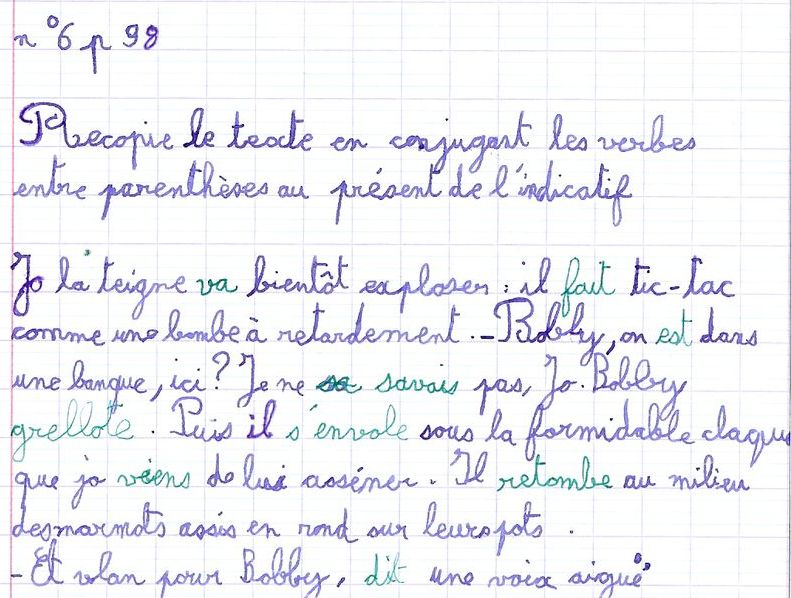 n°6 p 98
Recopie le texte en conjugant les verbes
entre parenthèses au présent de l'indicatif
Jo la teigne va bientôt exploser : il fait tic-tac
comme une bombe à retardement. - Bobby, on est dans
une banque, ici ? Je ne sa savais pas, Jo. Bobby
grellote. Puis il s'envole sous la formidable claque
que jo viens de lui asséner. Il retombe au milieu
des marmots assis en rond sur leurs pots.
- Et vlan pour Bobby, dit une voix aiguë,